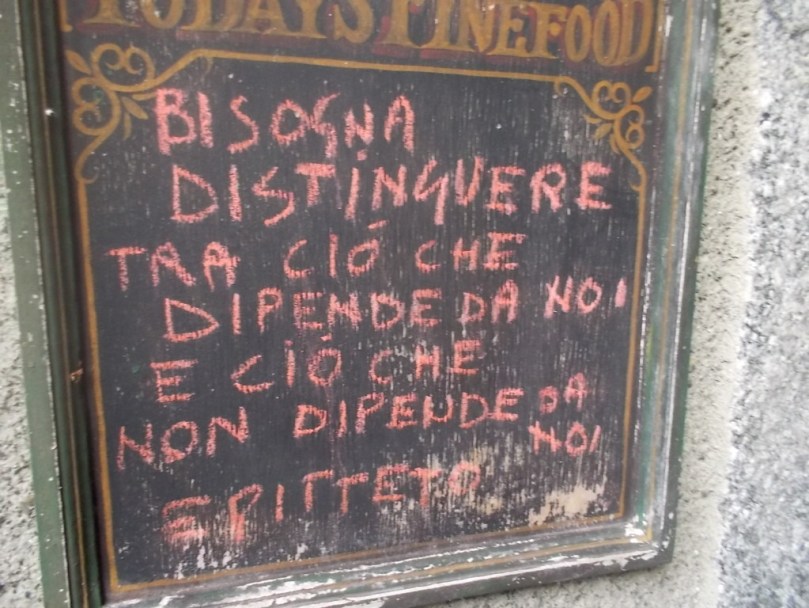 TODAY'S FINE FOOD
BISOGNA
DISTINGUERE
TRA CIÓ CHE
DIPENDE DA NOI
E CIÓ CHE
NON DIPENDE DA
NOI
EPITTETO